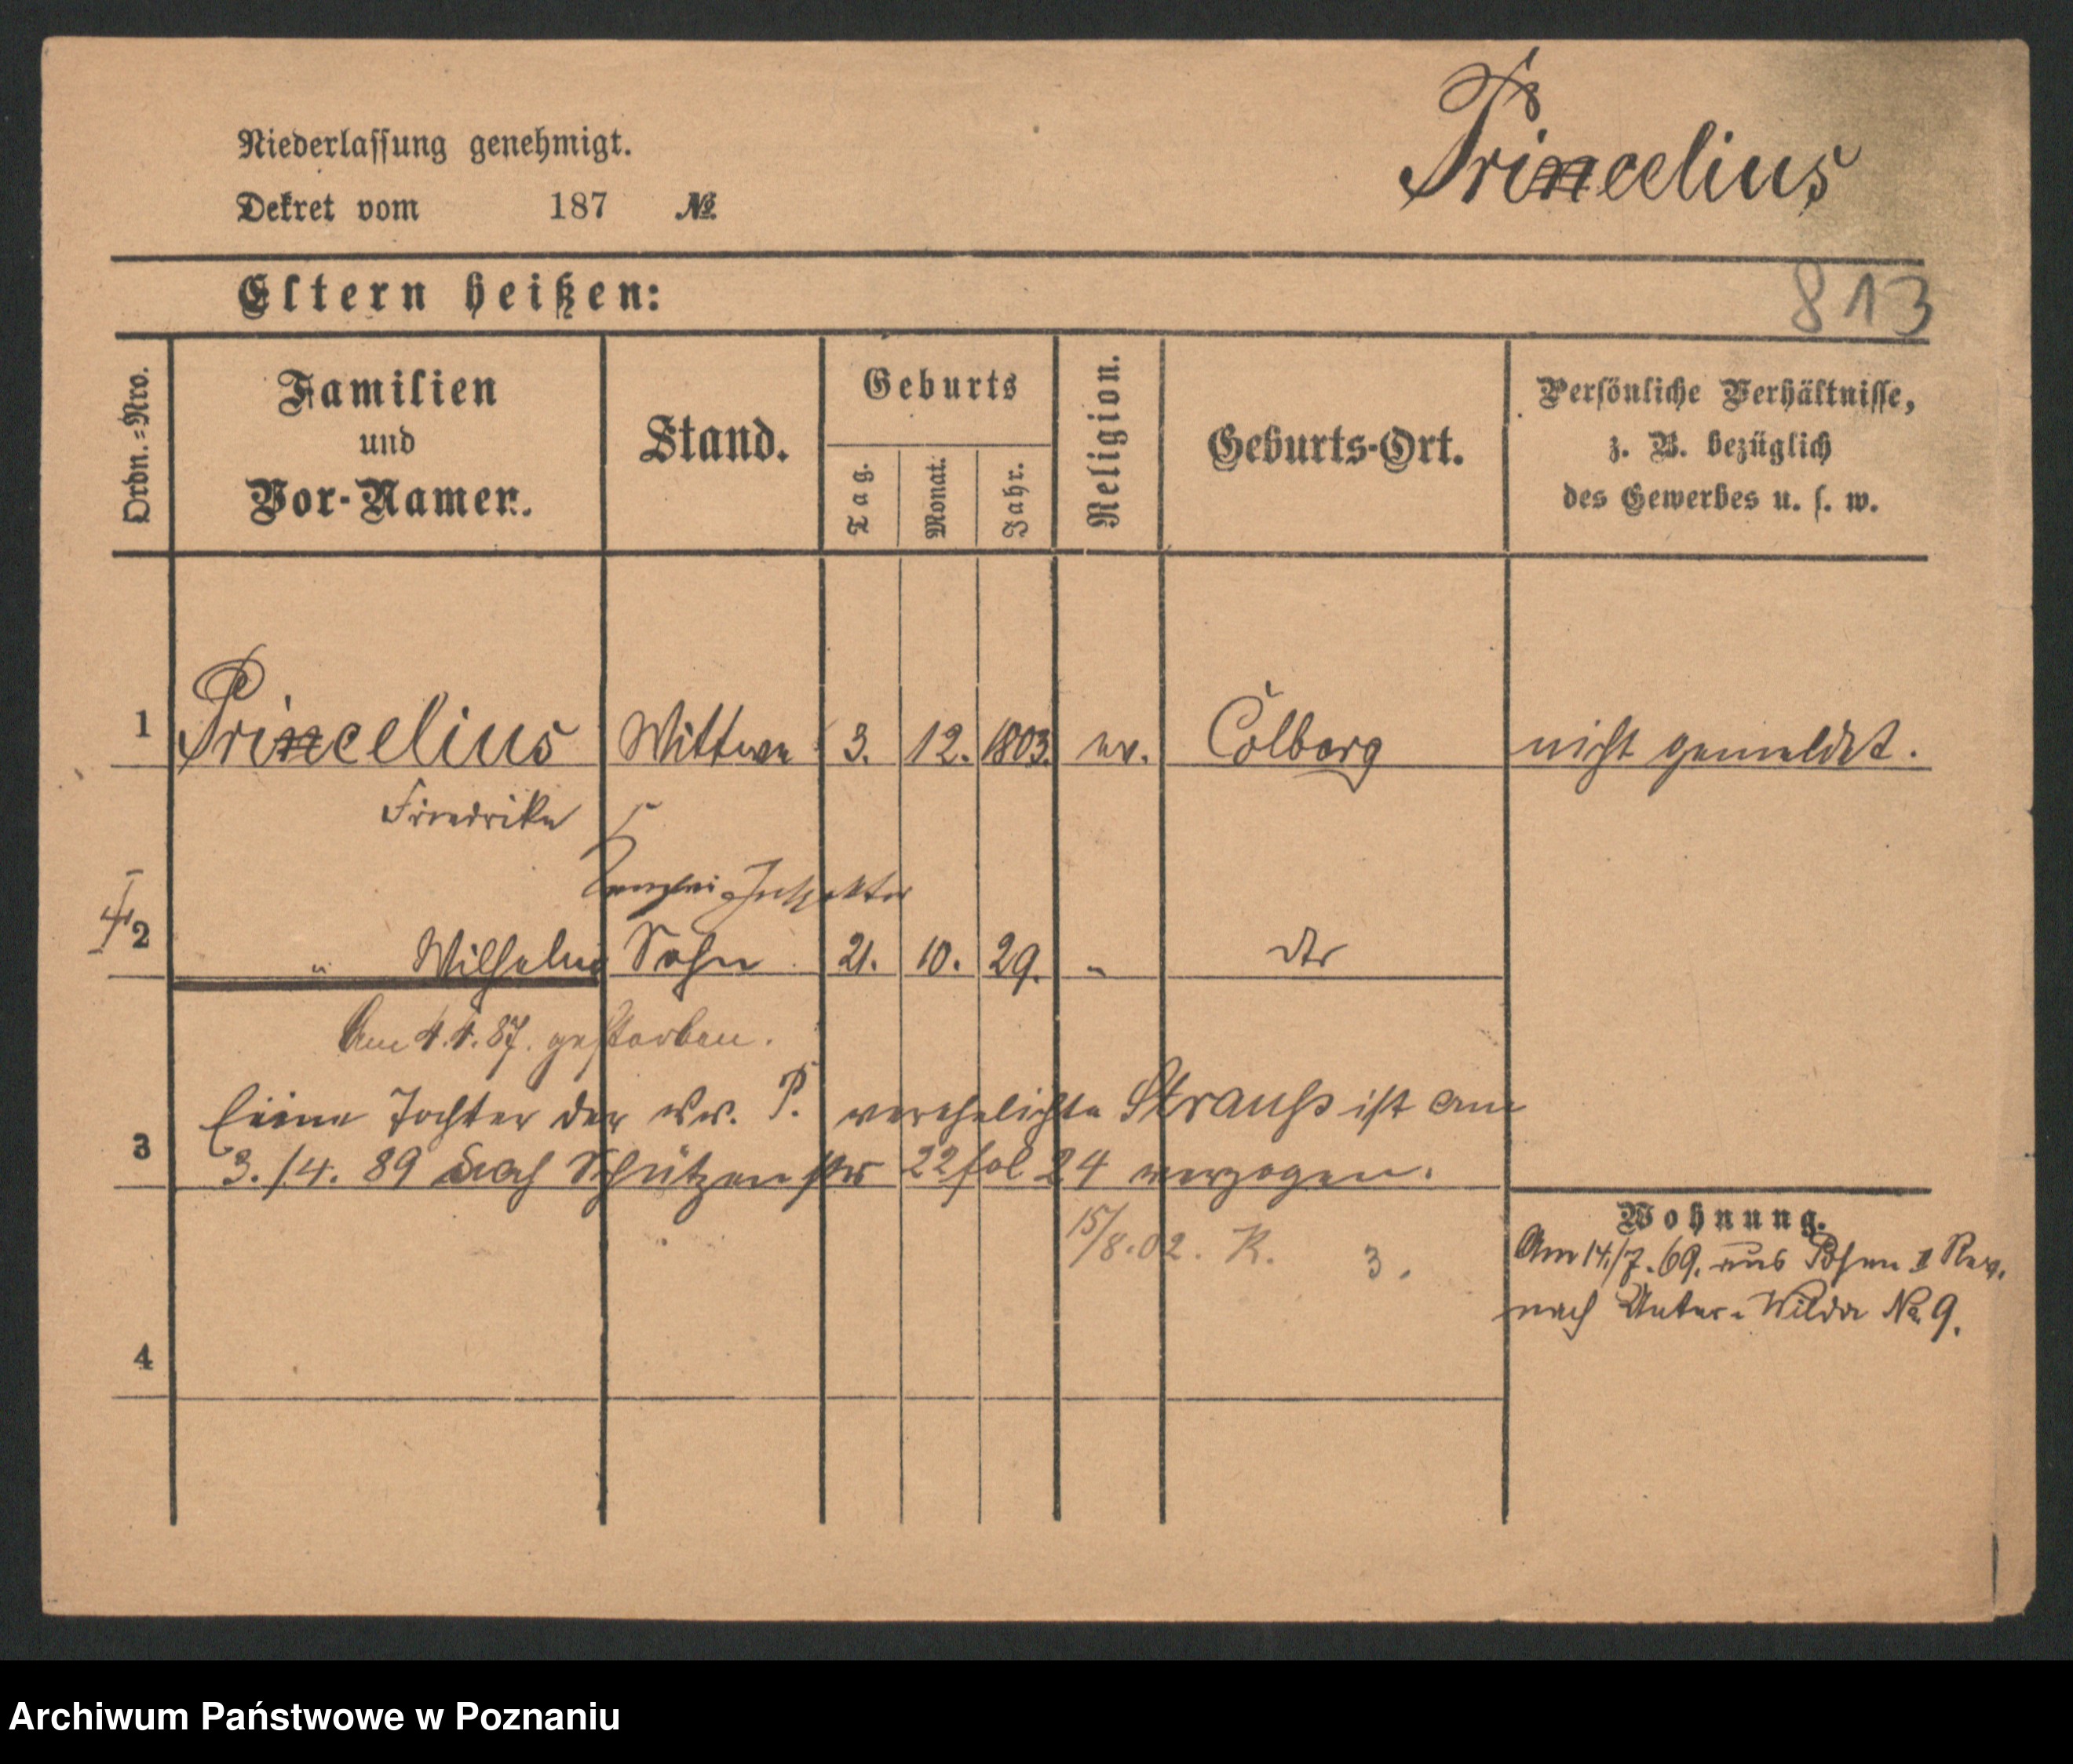 Princelius
Niederlassung genehmigt.
Dekret vom 187 №
Eltern heißen:
813
Ordn.=Nro.
Familien
und
Vor-Namen.
Stand.
Geburts
Tag.
Monat.
Jahr.
Religion.
Geburts-Ort.
Persönliche Verhältnisse,
z. B. bezüglich
des Gewerbes u. s. w.
1 Princelius Wittwe 3. 12. 1803. ev. Colberg nicht gemeldet.
Friedrike
Kanzlei-Inspektor
2 " Wilhelm Sohn 21. 10. 29. " dto
Am 4.4.87. gestorben.
Eine Tochter der Ww. P. verehelichte Strauss ist am
3 3./4. 89 nach Schützenstr 22 fol 24 verzogen.
15/8.02. K. 3.
Wohnung.
Am 14./7.69. aus Posen II Rev.
nach Unter-Wilda No 9.
4
Archiwum Państwowe w Poznaniu